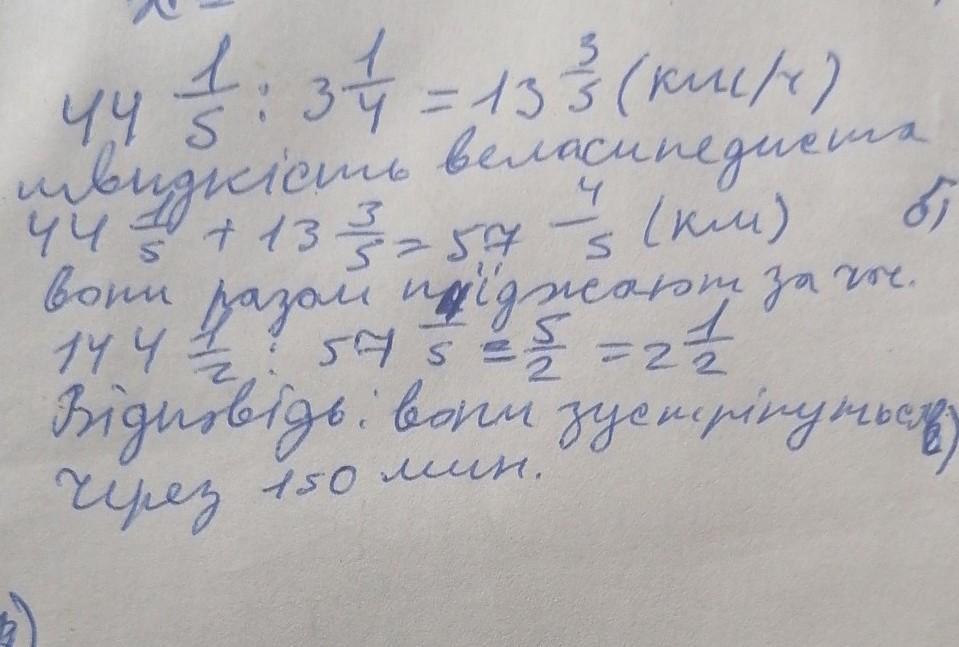 44 1/5 : 3 1/4 = 13 3/5 (км/ч)
швидкість веласипедиста
44 1/5 + 13 3/5 = 57 4/5 (км) б)
вони разом проїджают за
144 1/2 : 57 4/5 = 5/2 = 2 1/2
Відповідь: вони зустрінуться в)
через 150 мин.
в)